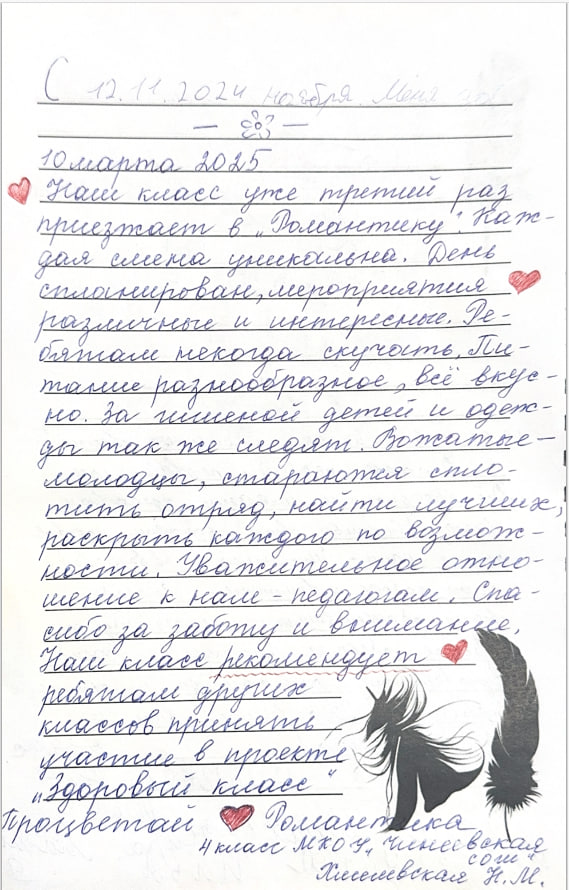 С 12.11.2024 ноября. Меня
10 марта 2025
Наш класс уже третий раз
приезжает в „Романтику". Каж-
дая смена уникальна. День
спланирован, мероприятия
различные и интересные. Ре-
бятам некогда скучать. Пи-
тание разнообразное, всё вкус-
но. За гигиеной детей и одеж-
ды так же следят. Вожатые -
молодцы, стараются спло-
тить отряд, найти лучших,
раскрыть каждого по возмож-
ности. Уважительное отно-
шение к нам - педагогам. Спа-
сибо за заботу и внимание.
Наш класс рекомендует
ребятам других
классов принять
участие в проекте
„Здоровый класс"
Процветай Романтика
4 класс МКОУ „Чинеевская
сош"
Хмелевская Н.М.